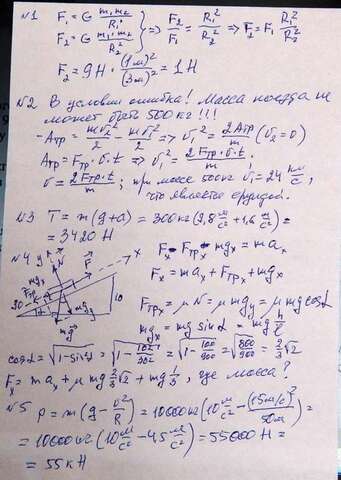 №1 F₁ = G m₁m₂/R₁² ; F₂ = G m₁m₂/R₂² => F₂/F₁ = R₁²/R₂² => F₂ = F₁ R₁²/R₂²
F₂ = 9Н · (1м)²/(3м)² = 1Н
№2 В условии ошибка! Масса поезда не
может быть 500 кг!!!
-Aтр = mv₂²/2 - mv₁²/2 => v₁² = 2Aтр/m (v₂=0)
Aтр = Fтр·v·t => v₁² = 2Fтр·v·t/m ;
v = 2Fтр·t/m ; при массе 500кг v₁ = 24 км/с,
что является ерундой.
№3 T = m(g+a) = 300кг(9,8 м/с² + 1,6 м/с²) =
= 3420 Н
№4 y N F x
Fx - Fтрx - mgx = max
Fx = max + Fтрx + mgx
30 mg 10
Fтрx = μN = μmgy = μmg cosα
mgx = mg sinα = mg h/l
cosα = √(1-sin²α) = √(1-10²/30²) = √(1-100/900) = √(800/900) = 2/3 √2
Fx = max + μmg 2/3 √2 + mg 1/3, где масса?
№5 p = m(g - v²/R) = 10000кг(10 м/с² - (15м/с)²/50м) =
= 10000кг(10 м/с² - 4,5 м/с²) = 55000Н =
= 55кН